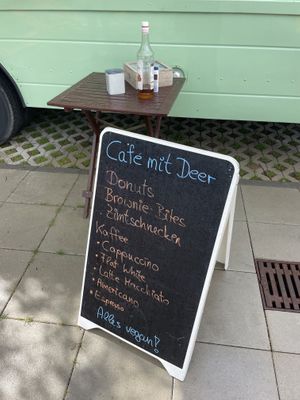 Café mit Deer
Donuts
Brownie-Bites
Zimtschnecken
Kaffee
• Cappuccino
• Flat White
• Latte Macchiato
• Americano
• Espresso
Alles vegan!